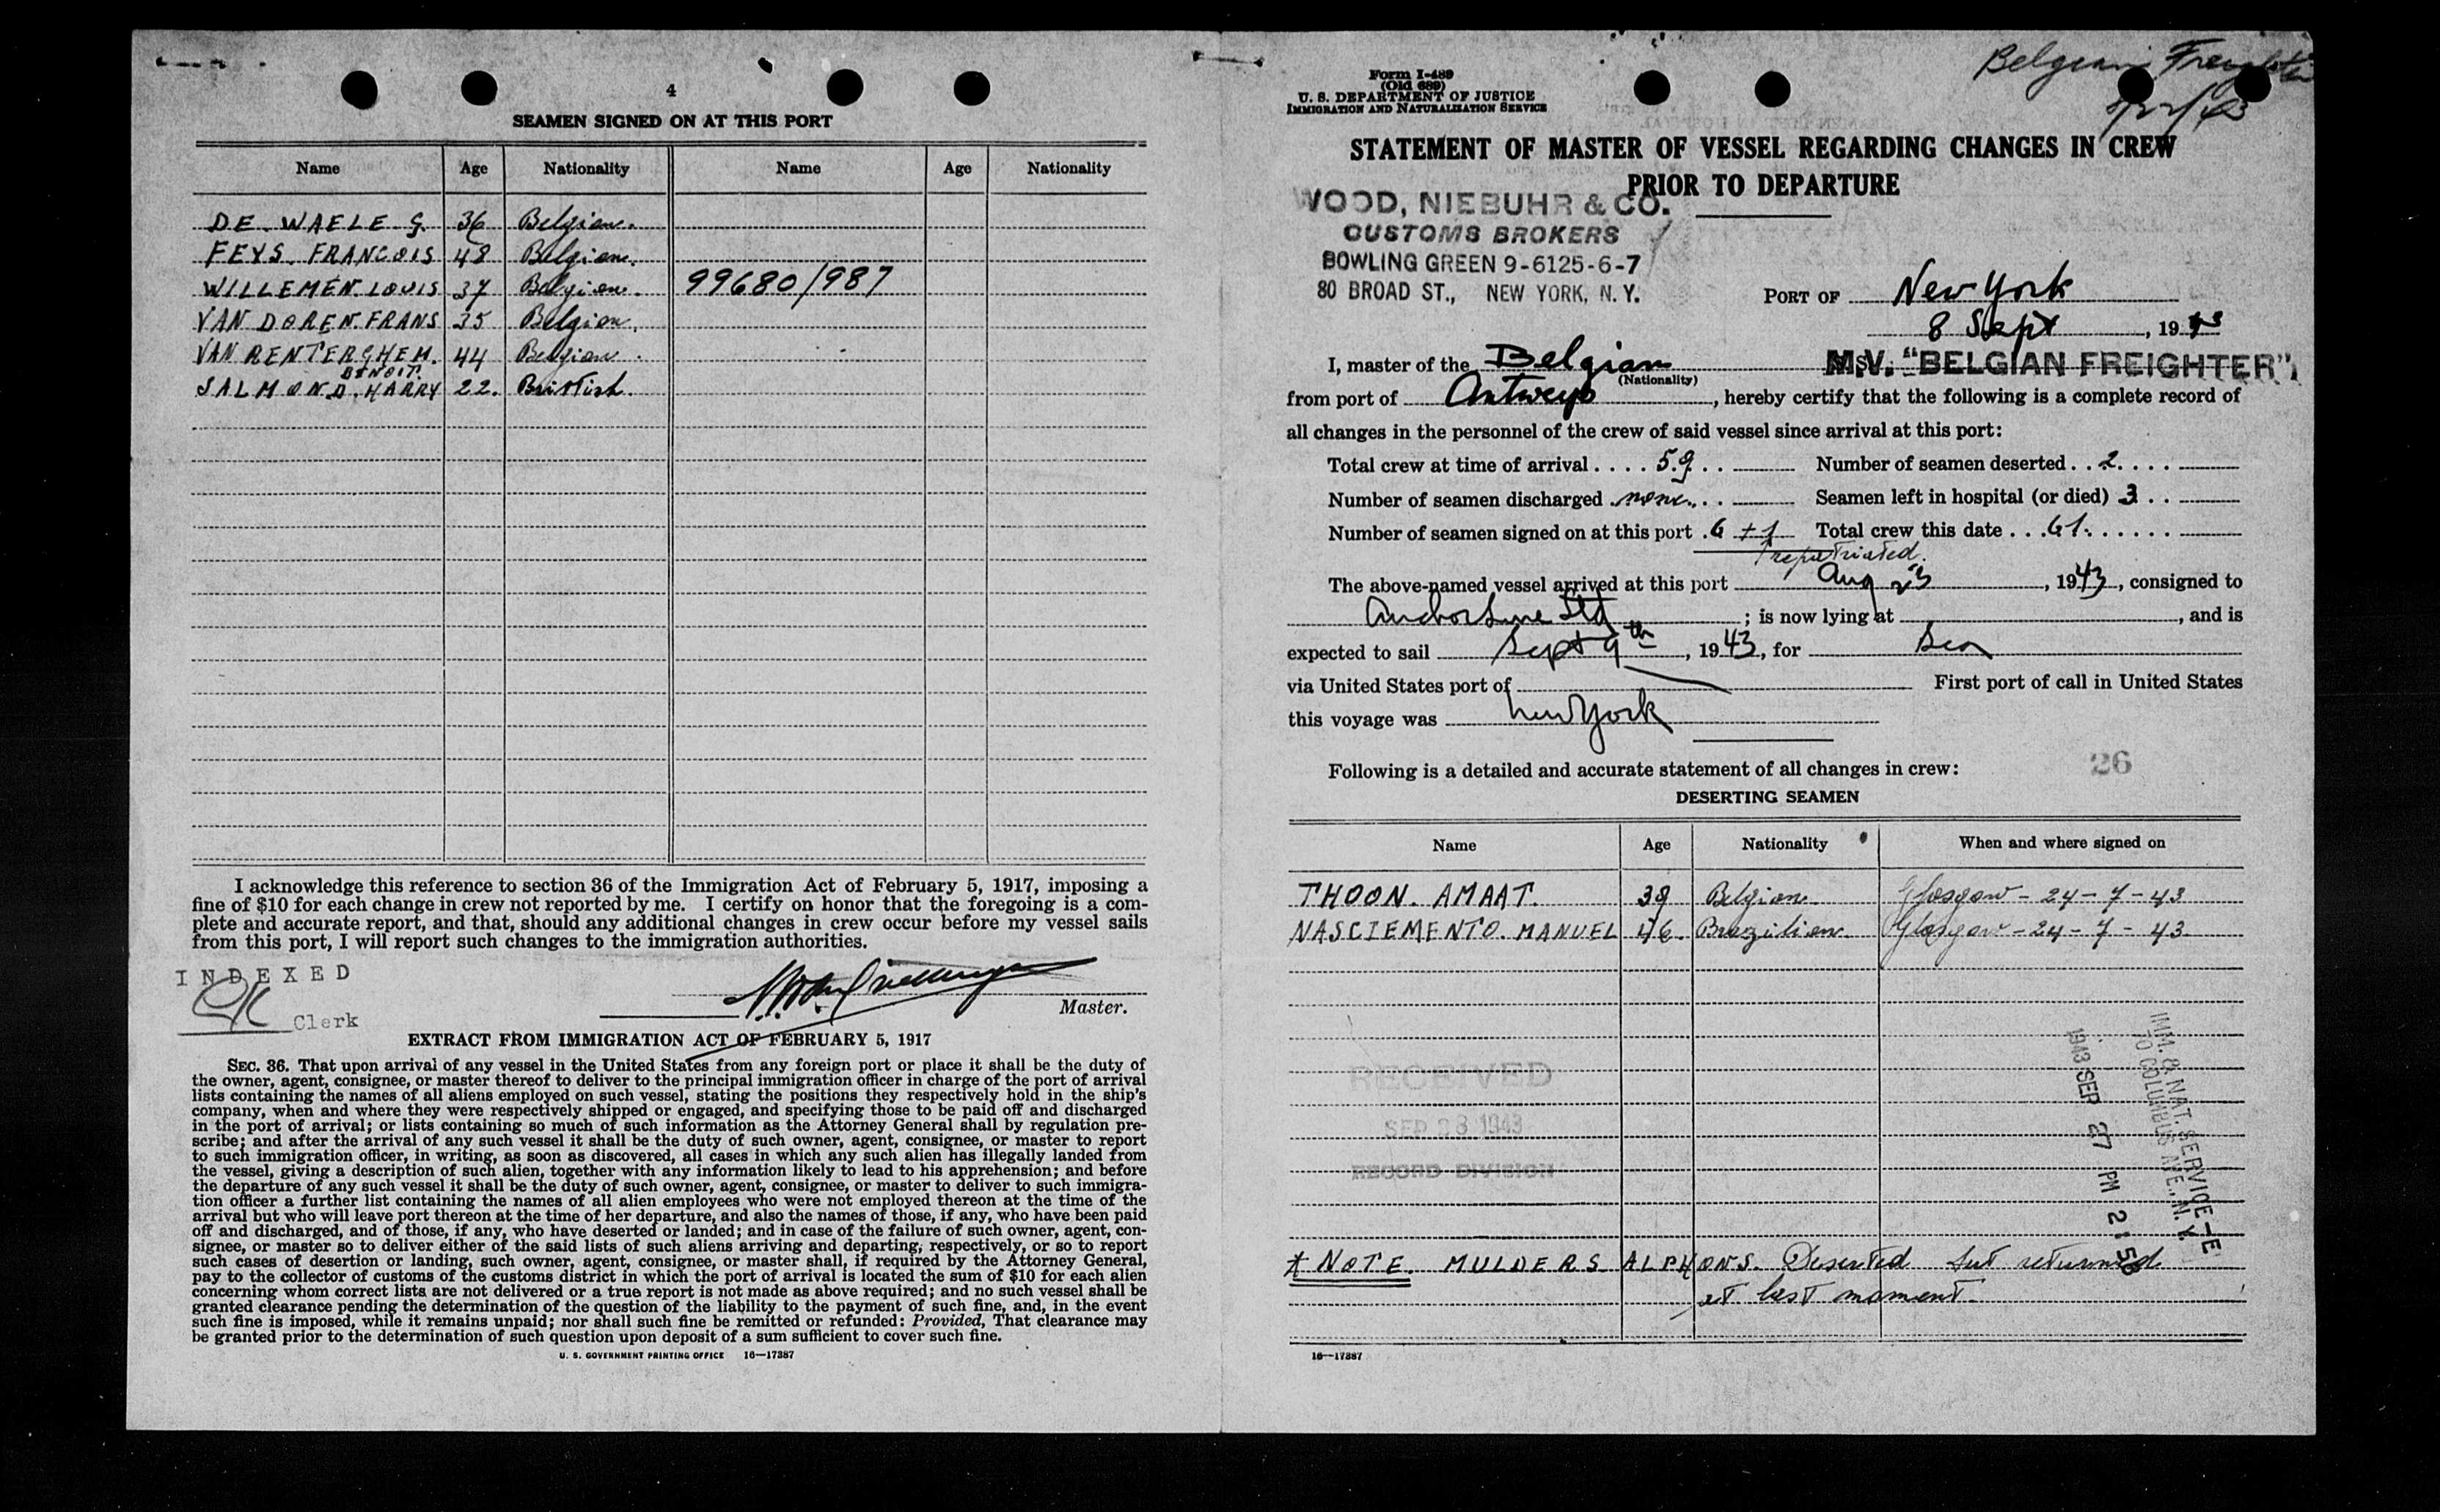 4
SEAMEN SIGNED ON AT THIS PORT
Name Age Nationality Name Age Nationality
DE WAELE G. 36 Belgian.
FEYS. FRANCOIS 48 Belgian.
WILLEMEN. LOUIS 37 Belgian. 99680/987
VAN DOREN. FRANS 35 Belgian.
VAN RENTERGHEM. 44 Belgian.
BENOIT.
SALMOND. HARRY 22. Brittish.
I acknowledge this reference to section 36 of the Immigration Act of February 5, 1917, imposing a
fine of $10 for each change in crew not reported by me. I certify on honor that the foregoing is a com-
plete and accurate report, and that, should any additional changes in crew occur before my vessel sails
from this port, I will report such changes to the immigration authorities.
INDEXED
Clerk
Master.
EXTRACT FROM IMMIGRATION ACT OF FEBRUARY 5, 1917
SEC. 36. That upon arrival of any vessel in the United States from any foreign port or place it shall be the duty of
the owner, agent, consignee, or master thereof to deliver to the principal immigration officer in charge of the port of arrival
lists containing the names of all aliens employed on such vessel, stating the positions they respectively hold in the ship's
company, when and where they were respectively shipped or engaged, and specifying those to be paid off and discharged
in the port of arrival; or lists containing so much of such information as the Attorney General shall by regulation pre-
scribe; and after the arrival of any such vessel it shall be the duty of such owner, agent, consignee, or master to report
to such immigration officer, in writing, as soon as discovered, all cases in which any such alien has illegally landed from
the vessel, giving a description of such alien, together with any information likely to lead to his apprehension; and before
the departure of any such vessel it shall be the duty of such owner, agent, consignee, or master to deliver to such immigra-
tion officer a further list containing the names of all alien employees who were not employed thereon at the time of the
arrival but who will leave port thereon at the time of her departure, and also the names of those, if any, who have been paid
off and discharged, and of those, if any, who have deserted or landed; and in case of the failure of such owner, agent, con-
signee, or master so to deliver either of the said lists of such aliens arriving and departing, respectively, or so to report
such cases of desertion or landing, such owner, agent, consignee, or master shall, if required by the Attorney General,
pay to the collector of customs of the customs district in which the port of arrival is located the sum of $10 for each alien
concerning whom correct lists are not delivered or a true report is not made as above required; and no such vessel shall be
granted clearance pending the determination of the question of the liability to the payment of such fine, and, in the event
such fine is imposed, while it remains unpaid; nor shall such fine be remitted or refunded: Provided, That clearance may
be granted prior to the determination of such question upon deposit of a sum sufficient to cover such fine.
U. S. GOVERNMENT PRINTING OFFICE 16—17387
Belgian Freighter
Form I-489
(Old 689)
U. S. DEPARTMENT OF JUSTICE
IMMIGRATION AND NATURALIZATION SERVICE
STATEMENT OF MASTER OF VESSEL REGARDING CHANGES IN CREW
PRIOR TO DEPARTURE
WOOD, NIEBUHR & CO.
CUSTOMS BROKERS
BOWLING GREEN 9-6125-6-7
80 BROAD ST., NEW YORK, N. Y.
PORT OF New York
8 Sept, 1943
I, master of the Belgian M.V. "BELGIAN FREIGHTER",
(Nationality)
from port of Antwerp, hereby certify that the following is a complete record of
all changes in the personnel of the crew of said vessel since arrival at this port:
Total crew at time of arrival .... 59. Number of seamen deserted .. 2.
Number of seamen discharged none. Seamen left in hospital (or died) 3
Number of seamen signed on at this port . 6 + 1 Total crew this date ... 61.
repatriated.
The above-named vessel arrived at this port Aug 23, 1943, consigned to
Anchor Line Ltd; is now lying at , and is
expected to sail Sept 9th, 1943, for Sea
via United States port of First port of call in United States
this voyage was New York
Following is a detailed and accurate statement of all changes in crew: 26
DESERTING SEAMEN
Name Age Nationality When and where signed on
THOON. AMAAT. 39 Belgian Glasgow - 24 - 7 - 43
NASCIEMENTO. MANUEL 46 Brazilian Glasgow - 24 - 7 - 43
RECEIVED
SEP 28 1943
RECORD DIVISION
IMM. & NAT. SERVICE
70 COLUMBUS AVE., N. Y.
1943 SEP 27 PM 2:58
* NOTE. MULDERS ALPHONS. Deserted but returned
at last moment.
16—17387